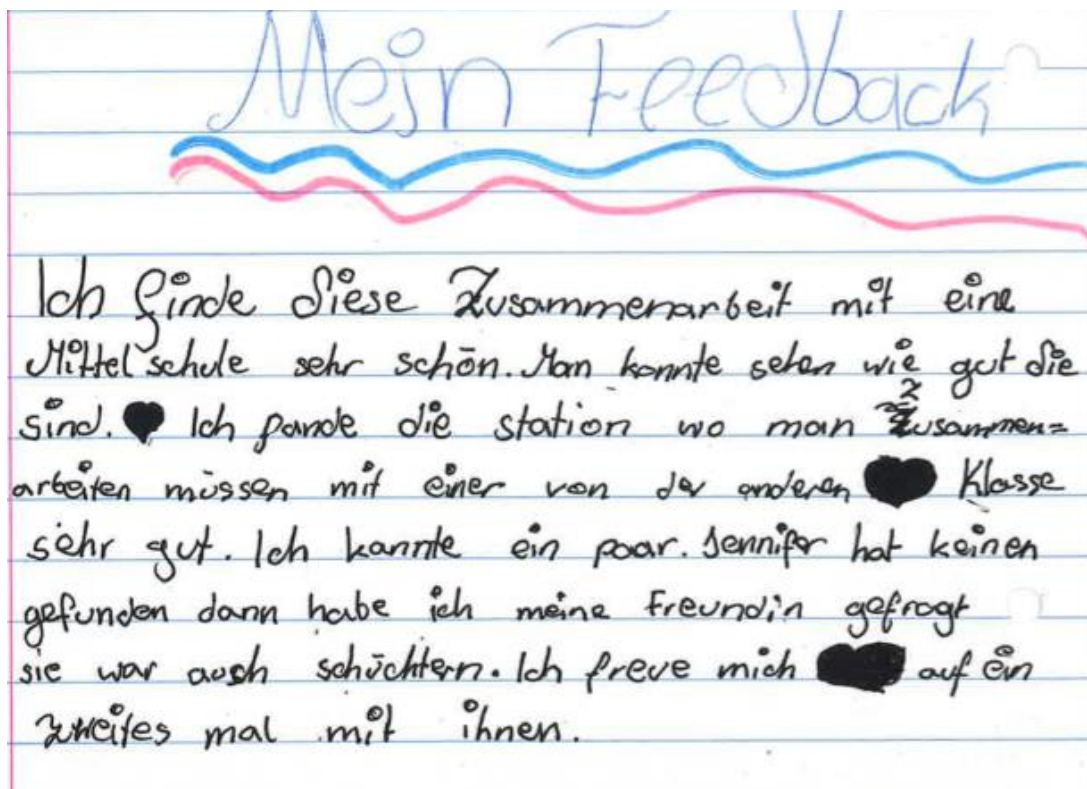 Mein Feedback
Ich finde diese Zusammenarbeit mit eine
Mittelschule sehr schön. Man konnte sehen wie gut die
sind. Ich fande die station wo man Zusammen=
arbeiten müssen mit einer von der anderen Klasse
sehr gut. Ich kannte ein paar. Jennifer hat keinen
gefunden dann habe ich meine Freundin gefragt
sie war auch schüchtern. Ich freue mich auf ein
zweites mal mit ihnen.